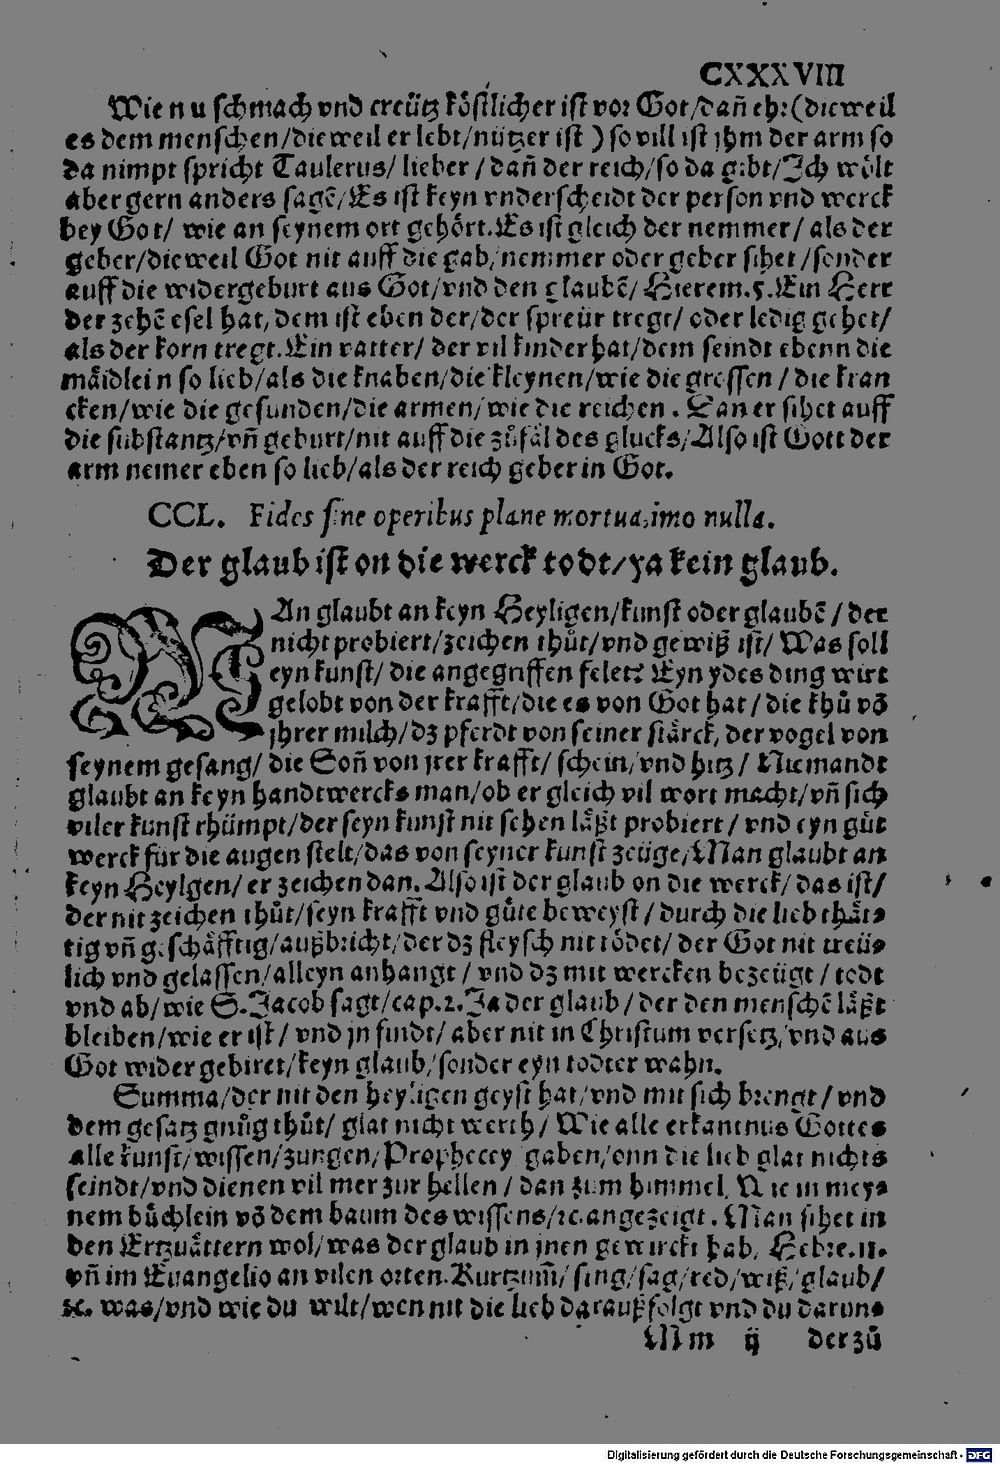 CXXXVIII
Wie nu schmach vnd creütz köstlicher ist vor Got/dañ ehr (dieweil
es dem menschen/dieweil er lebt/nützer ist) so vill ist jhm der arm so
da nimpt spricht Taulerus/ lieber / dañ der reich/so da gibt/Ich wölt
aber gern anders sagẽ/Es ist keyn vnderscheidt der person vnd werck
bey Got/ wie an seynem ort gehört. Es ist gleich der nemmer/ als der
geber/dieweil Got nit auff die gab/nemmer oder geber sihet /sonder
auff die widergeburt aus Got/vnd den glaubẽ/ Hierem.5. Ein Herr
der zehẽ esel hat/dem ist eben der/der spreür tregt/ oder ledig gehet/
als der korn tregt. Ein vatter/ der vil kinder hat/dem seindt ebenn die
mäidlein so lieb/als die knaben/die kleynen/wie die grossen / die kran
cken/wie die gesunden/die armen/wie die reichen . Dan er sihet auff
die substantz/vñ geburt/nit auff die zůfäl des glucks/Also ist Gott der
arm nemer eben so lieb/als der reich geber in Got.
CCL. Fides sine operibus plane mortua,imo nulla.
Der glaub ist on die werck todt/ya kein glaub.
MAn glaubt an keyn Heyligen/kunst oder glaubẽ / der
nicht probiert/zeichen thůt/vnd gewiß ist/ Was soll
eyn kunst/ die angegriffen felet? Eyn ydes ding wirt
gelobt von der krafft/die es von Got hat / die khů võ
jhrer milch/dz pferdt von seiner stärck, der vogel von
seynem gesang/ die Soñ von jrer krafft/ schein/vnd hitz/ Niemandt
glaubt an keyn handtwercks man/ob er gleich vil wort macht/vñ sich
viler kunst rhümpt/der seyn kunst nit sehen läßt probiert / vnd eyn gůt
werck für die augen stelt/das von seyner kunst zeüge/Man glaubt an
keyn Heylgen/ er zeichen dan. Also ist der glaub on die werck/ das ist/
der nit zeichen thůt/seyn krafft vnd gůte beweyst / durch die lieb thät-
tig vñ geschäfftig/außbricht/der dz fleysch nit tödet/ der Got nit treü-
lich vnd gelassen/alleyn anhangt / vnd dz mit wercken bezeügt / todt
vnd ab/wie S.Jacob sagt/cap.2.Ja der glaub / der den menschẽ läßt
bleiben/wie er ist / vnd jn findt/ aber nit in Christum versetz/vnd aus
Got wider gebiret/keyn glaub/sonder eyn todter wahn.
Summa/der nit den heyligen geyst hat/vnd mit sich brengt / vnd
dem gesatz gnůg thůt/ glat nicht werth/ Wie alle erkantnus Gottes
alle kunst/wissen/zungen/Prophecey gaben/onn die lieb glat nichts
seindt/vnd dienen vil mer zur hellen / dan zum himmel, Wie in mey-
nem bůchlein võ dem baum des wissens/ꝛc.angezeigt . Man sihet in
den Ertzuättern wol/was der glaub in jnen gewirckt hab, Hebre.11.
vñ im Euangelio an vilen orten.Kurtzum̃/ sing/sag/red/wiß/glaub/
ꝛc. was/vnd wie du wilt/wen nit die lieb darauß folgt vnd du darun-
Mm ij derzů
Digitalisierung gefördert durch die Deutsche Forschungsgemeinschaft - DFG